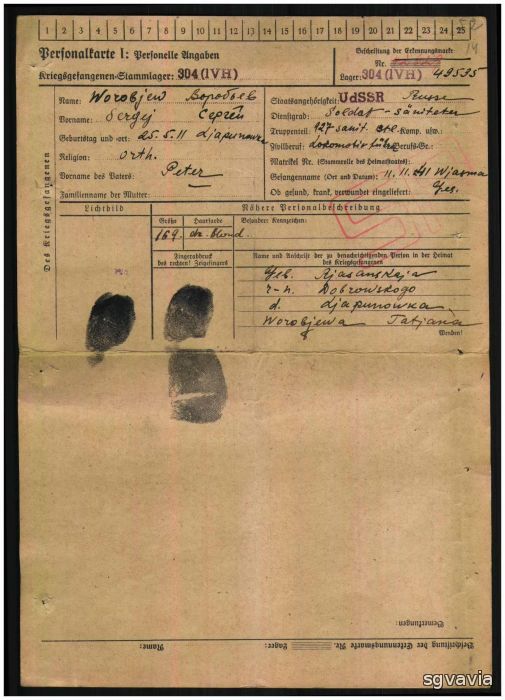 1 2 3 4 5 6 7 8 9 10 11 12 13 14 15 16 17 18 19 20 21 22 23 24 25
14
Personalkarte I: Personelle Angaben
Kriegsgefangenen-Stammlager: 304 (IV H)
Beschriftung der Erkennungsmarke
Nr. 49535
Lager: 304 (IV H)
Des Kriegsgefangenen
Name: Worobjew Воробьев
Vorname: Sergej Сергей
Geburtstag und -ort: 25.5.11 Ljapunowka
Religion: Orth.
Vorname des Vaters: Peter
Familienname der Mutter:
Staatsangehörigkeit: UdSSR Russe
Dienstgrad: Soldat - säniteter
Truppenteil: 127 sanit. btl. Komp. usw.
Zivilberuf: Lokomotivführer Berufs-Gr.:
Matrikel Nr. (Stammrolle des Heimatstaates)
Gefangennahme (Ort und Datum): 11.11.41 Wjasma
Ob gesund, krank, verwundet eingeliefert: Ges.
Lichtbild
Nähere Personalbeschreibung
Größe Haarfarbe Besondere Kennzeichen:
169. dk. blond.
Fingerabdruck
des rechten! Zeigefingers
Name und Anschrift der zu benachrichtigenden Person in der Heimat
des Kriegsgefangenen
Geb. Rjasanskaja
r-n. Dobrowskogo
d. Ljapunowka
Worobjewa Tatjana
Wenden!
Bemerkungen:
Beschriftung der Erkennungsmarke Nr. Lager: Name:
sgvavia